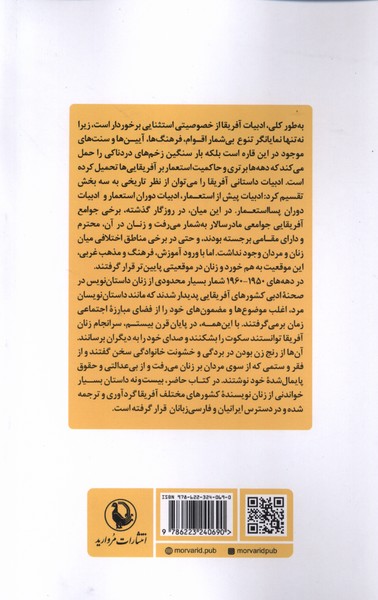 به‌طور کلی، ادبیات آفریقا از خصوصیتی استثنایی برخوردار است، زیرا
نه‌تنها نمایانگر تنوع بی‌شمار اقوام، فرهنگ‌ها، آیین‌ها و سنت‌های
موجود در این قاره است بلکه بار سنگین زخم‌های دردناکی را حمل
می‌کند که دهه‌ها برتری و حاکمیت استعمار بر آفریقایی‌ها تحمیل کرده
است. ادبیات داستانی آفریقا را می‌توان از نظر تاریخی به سه بخش
تقسیم کرد: ادبیات پیش از استعمار، ادبیات دوران استعمار و ادبیات
دوران پسااستعمار. در این میان، در روزگار گذشته، برخی جوامع
آفریقایی جوامعی مادرسالار به‌شمار می‌رفت و زنان در آن، محترم
و دارای مقامی برجسته بودند، و حتی در برخی مناطق اختلافی میان
زنان و مردان وجود نداشت. اما با ورود آموزش، فرهنگ و مذهب غربی،
این موقعیت به هم خورد و زنان در موقعیتی پایین‌تر قرار گرفتند.
در دهه‌های ۱۹۵۰-۱۹۶۰ شمار بسیار محدودی از زنان داستان‌نویس در
صحنهٔ ادبی کشورهای آفریقایی پدیدار شدند که مانند داستان‌نویسان
مرد، اغلب موضوع‌ها و مضمون‌های خود را از فضای مبارزهٔ اجتماعی
زمان برمی‌گرفتند. با این‌همه، در پایان قرن بیستم، سرانجام زنان
آفریقا توانستند سکوت را بشکنند و صدای خود را به دیگران برسانند.
آن‌ها از رنج زن بودن در بردگی و خشونت خانوادگی سخن گفتند و از
فقر و ستمی که از سوی مردان بر زنان می‌رفت و از بی‌عدالتی و حقوق
پایمال‌شدهٔ خود نوشتند. در کتاب حاضر، بیست‌ونه داستان بسیار
خواندنی از زنان نویسندهٔ کشورهای مختلف آفریقا گردآوری و ترجمه
شده و در دسترس ایرانیان و فارسی‌زبانان قرار گرفته است.
ISBN 978-622-324-069-0
9 786223 240690
انتشارات مروارید
morvarid.pub
morvaridpub